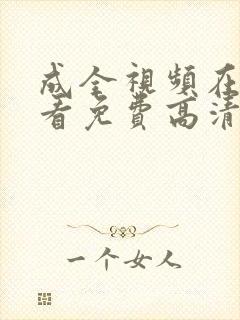 成全視頻在
看免费高清
一个女人